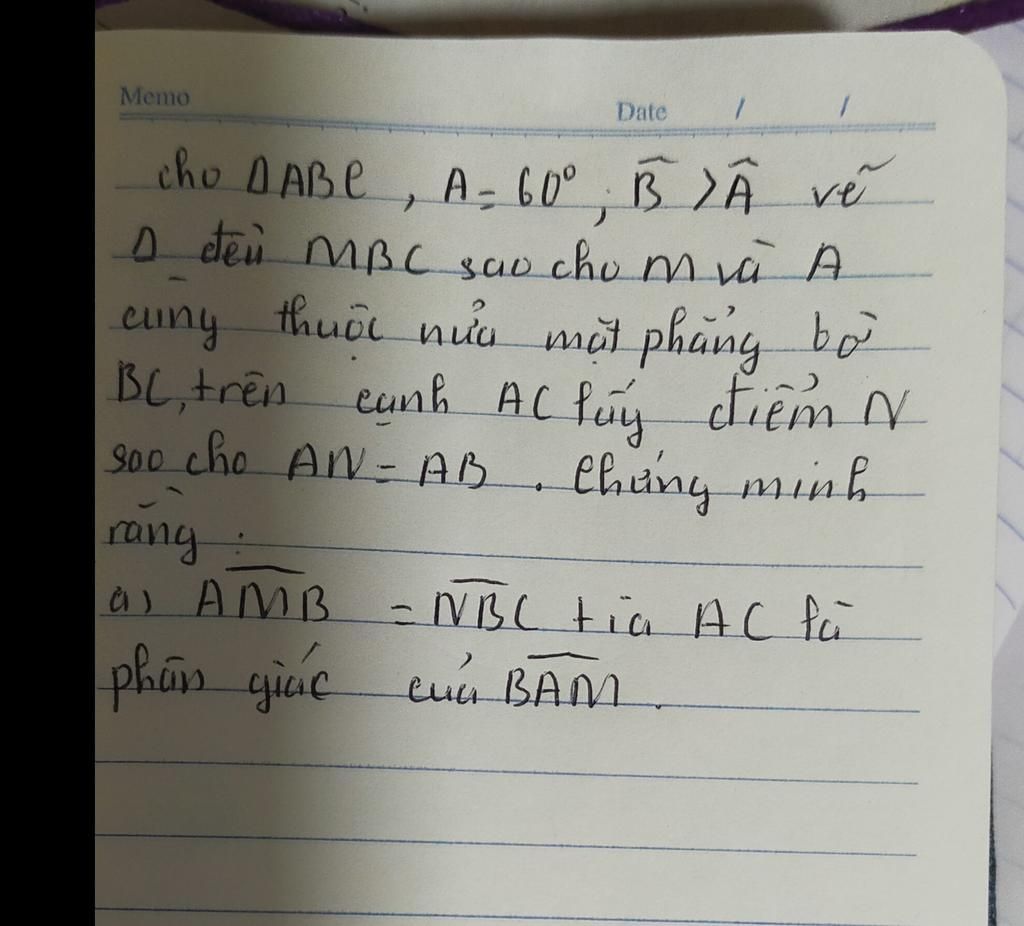 Memo
Date / /
cho ΔABC, A = 60°, B̂ > Â vẽ
Δ đều MBC sao cho M và A
cùng thuộc nửa mặt phẳng bờ
BC, trên cạnh AC lấy điểm N
sao cho AN = AB. Chứng minh
rằng:
a) AM̂B = NB̂C tia AC là
phân giác của BÂM.